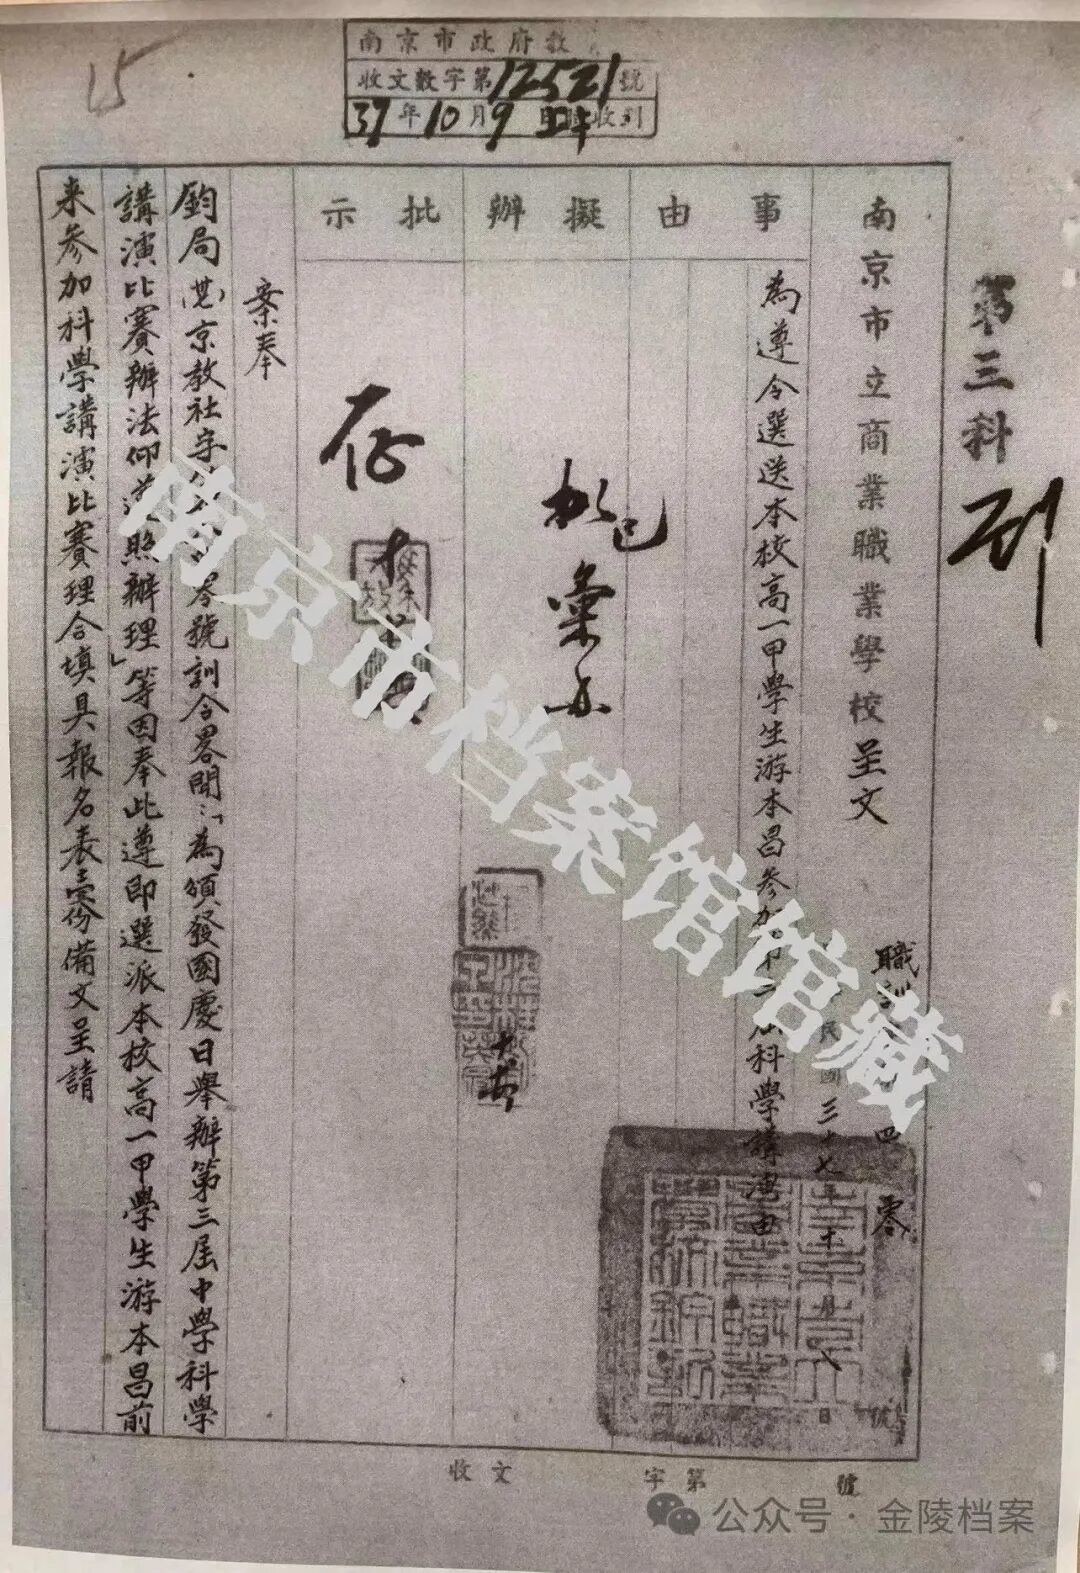 15
南京市政府教
收文數字第12521號
37年10月9日 收到
第三科
南京市立商業職業學校呈文
職訓 四 零 號
民國三十七年十月八日
事由
為遵令選送本校高一甲學生游本昌參加第三屆科學講演由
擬辦
彙
批示
存
案奉
鈞局 京教社字 號訓令畧開：「為頒發國慶日舉辦第三屆中學科學
講演比賽辦法仰遵照辦理」等因奉此遵即選派本校高一甲學生游本昌前
来參加科學講演比賽理合填具報名表壹份備文呈請
收文 字第 號
南京市档案馆馆藏
公众号·金陵档案